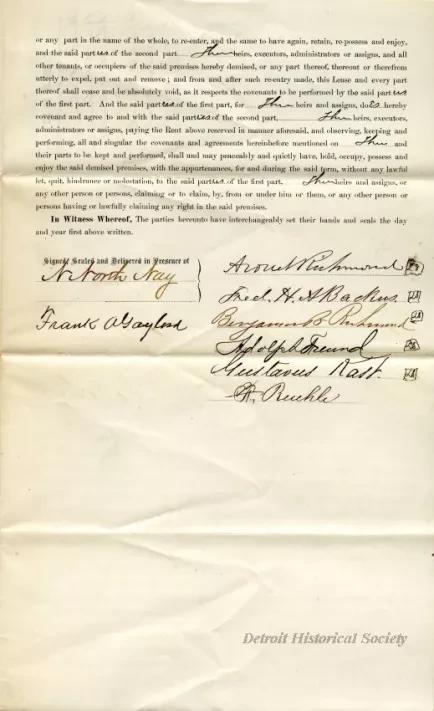 or any part in the name of the whole, to re-enter, and the same to have again, retain, re-possess and enjoy,
and the said parties of the second part Their heirs, executors, administrators or assigns, and all
other tenants, or occupiers of the said premises hereby demised, or any part thereof, thereout or therefrom
utterly to expel, put out and remove; and from and after such re-entry made, this Lease and every part
thereof shall cease and be absolutely void, as it respects the covenants to be performed by the said parties
of the first part. And the said parties of the first part, for Their heirs and assigns, does hereby
covenant and agree to and with the said parties of the second part, Their heirs, executors,
administrators or assigns, paying the Rent above reserved in manner aforesaid, and observing, keeping and
performing, all and singular the covenants and agreements hereinbefore mentioned on Their and
their parts to be kept and performed, shall and may peaceably and quietly have, hold, occupy, possess and
enjoy the said demised premises, with the appurtenances, for and during the said term, without any lawful
let, suit, hindrance or molestation, to the said parties of the first part, Their heirs and assigns, or
any other person or persons, claiming or to claim, by, from or under him or them, or any other person or
persons having or lawfully claiming any right in the said premises.
In Witness Whereof, The parties hereunto have interchangeably set their hands and seals the day
and year first above written.
Signed, Sealed and Delivered in Presence of
Richmond
Fred. H. A Backus.
Benjamin B Richmond
Frank A Gaylord
Adolph Freund
Gustavus Kast.
Detroit Historical Society